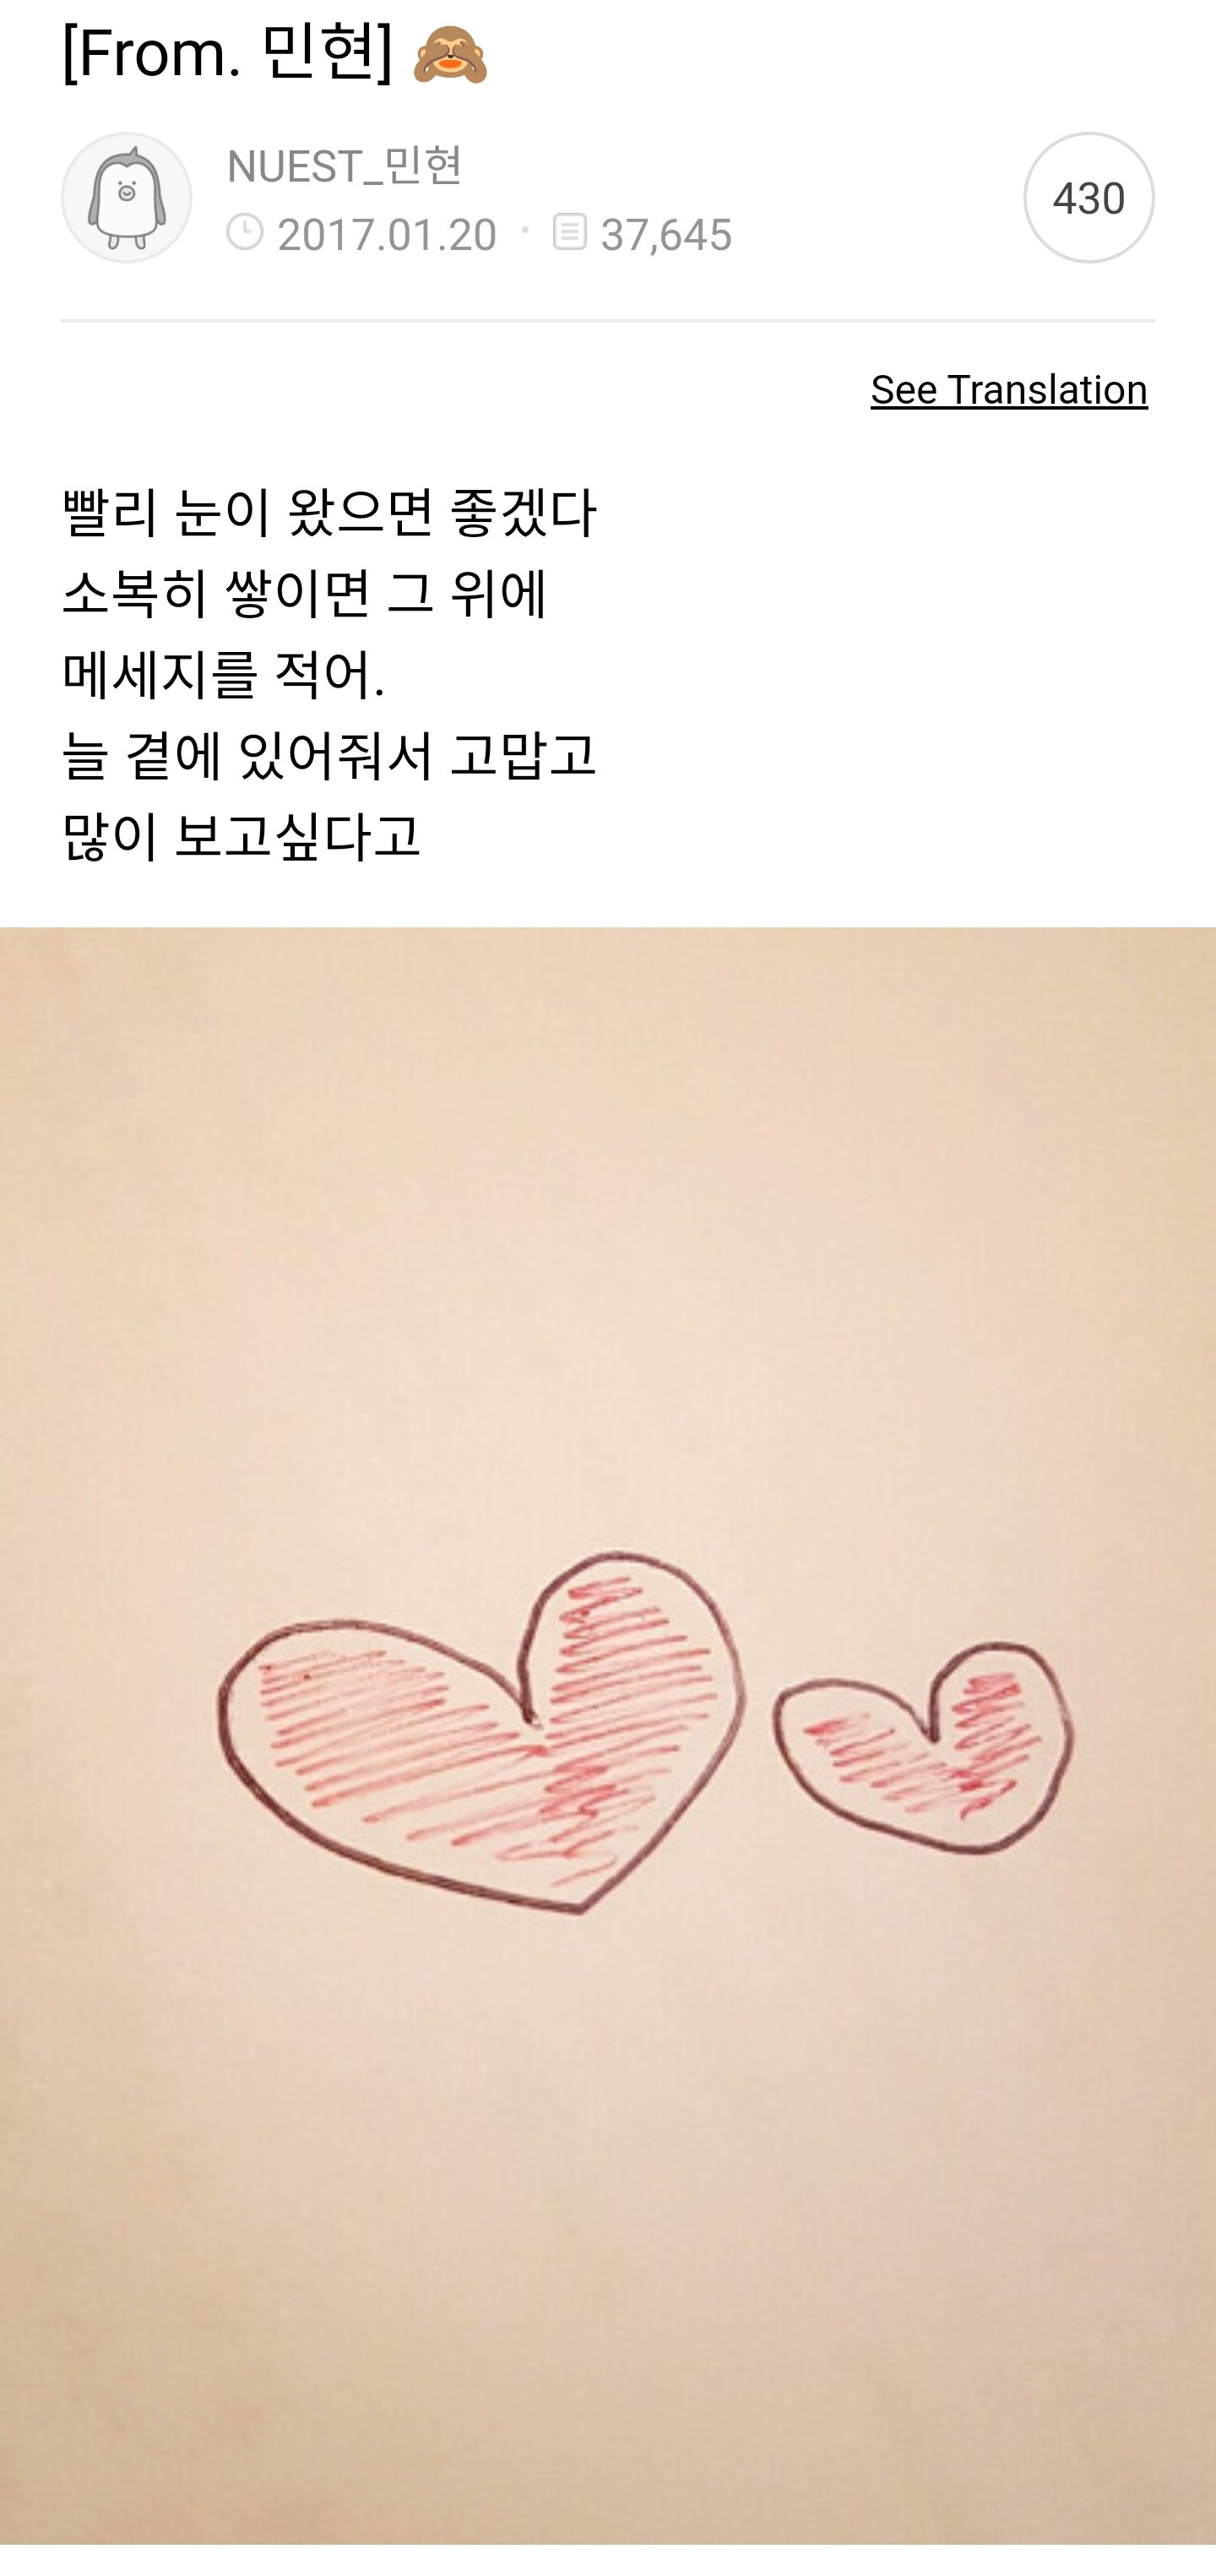 [From. 민현] 🙈
NUEST_민현
2017.01.20 · 37,645
430
See Translation
빨리 눈이 왔으면 좋겠다
소복히 쌓이면 그 위에
메세지를 적어.
늘 곁에 있어줘서 고맙고
많이 보고싶다고